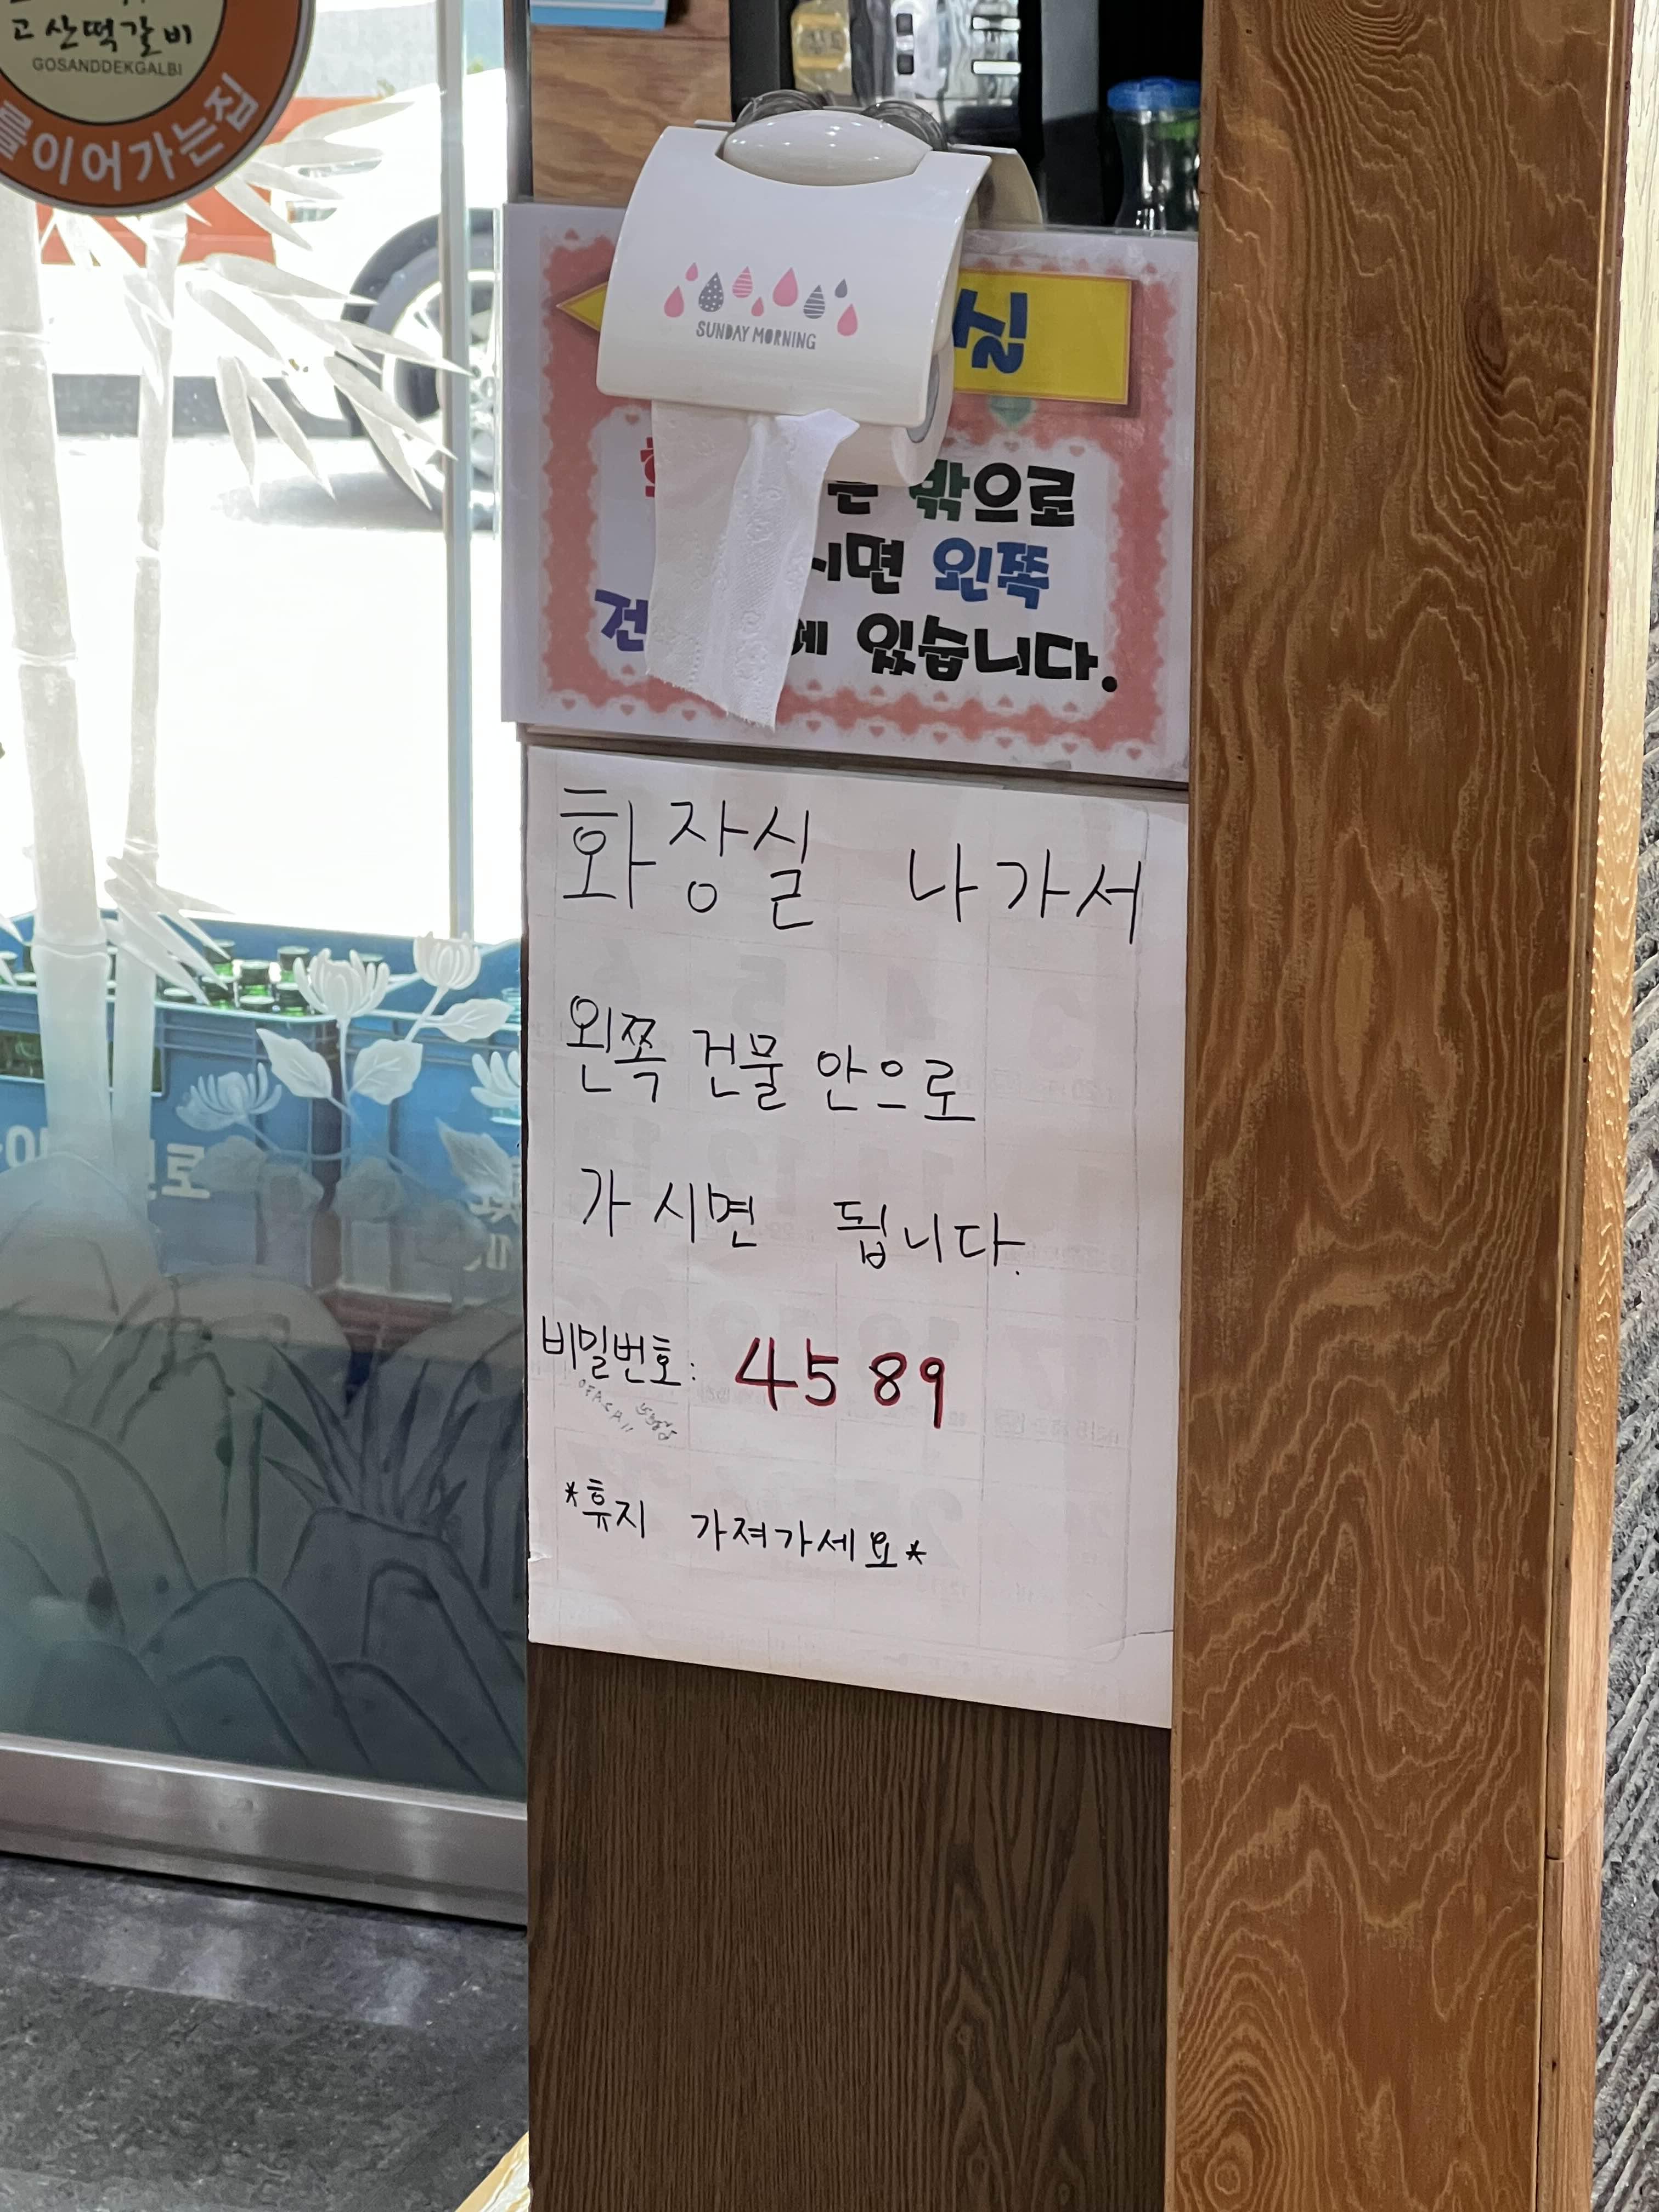 고산떡갈비
GOSANDDEKGALBI
를이어가는집
SUNDAY MORNING
실
밖으로
시면 왼쪽
에 있습니다.
화장실 나가서
왼쪽 건물 안으로
가시면 됩니다.
비밀번호: 4589
*휴지 가져가세요*